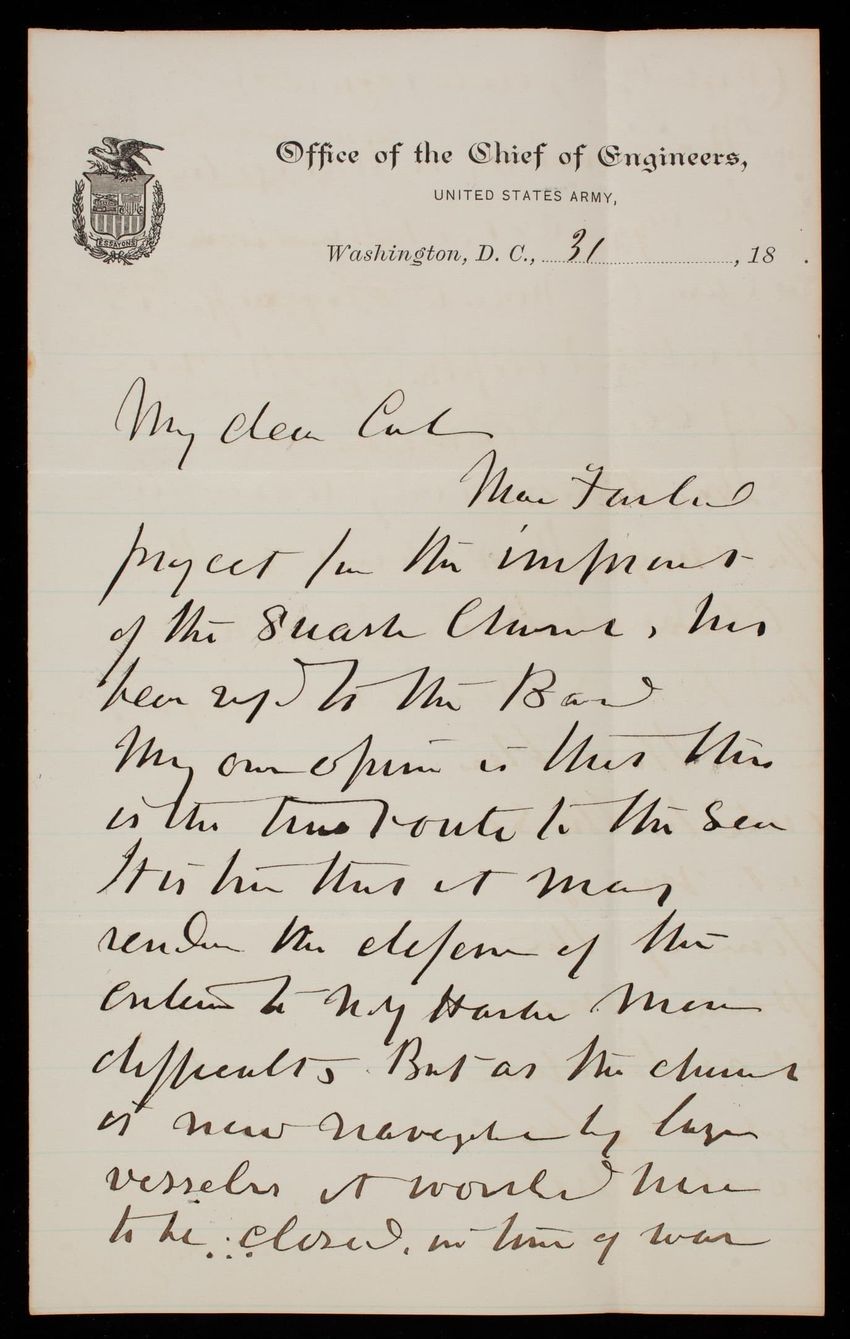 ESSAYONS
Office of the Chief of Engineers,
UNITED STATES ARMY,
Washington, D. C., 31 , 18 .
My dear Col
Mac Farland
project for the improvement
of the Swash Channel, has
been refd to the Board
My own opinion is that this
is the true route to the Sea
It is true that it may
render the defense of the
entrance to N.Y Harbor more
difficult, But as the channel
is now navigable by large
vessels it would have
to be closed, in time of war